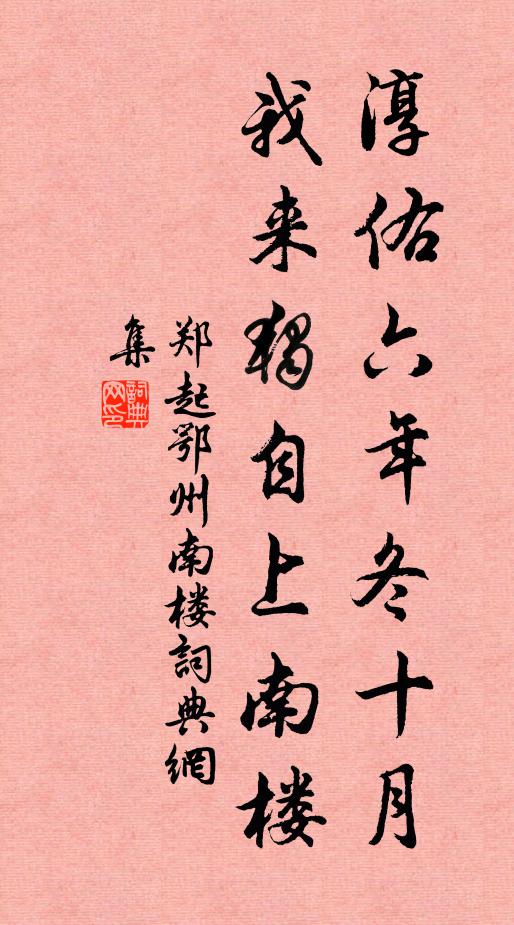 淳佑六年冬十月
我来独自上南楼
郑起鄂州南楼詞典網
集
詞典网印